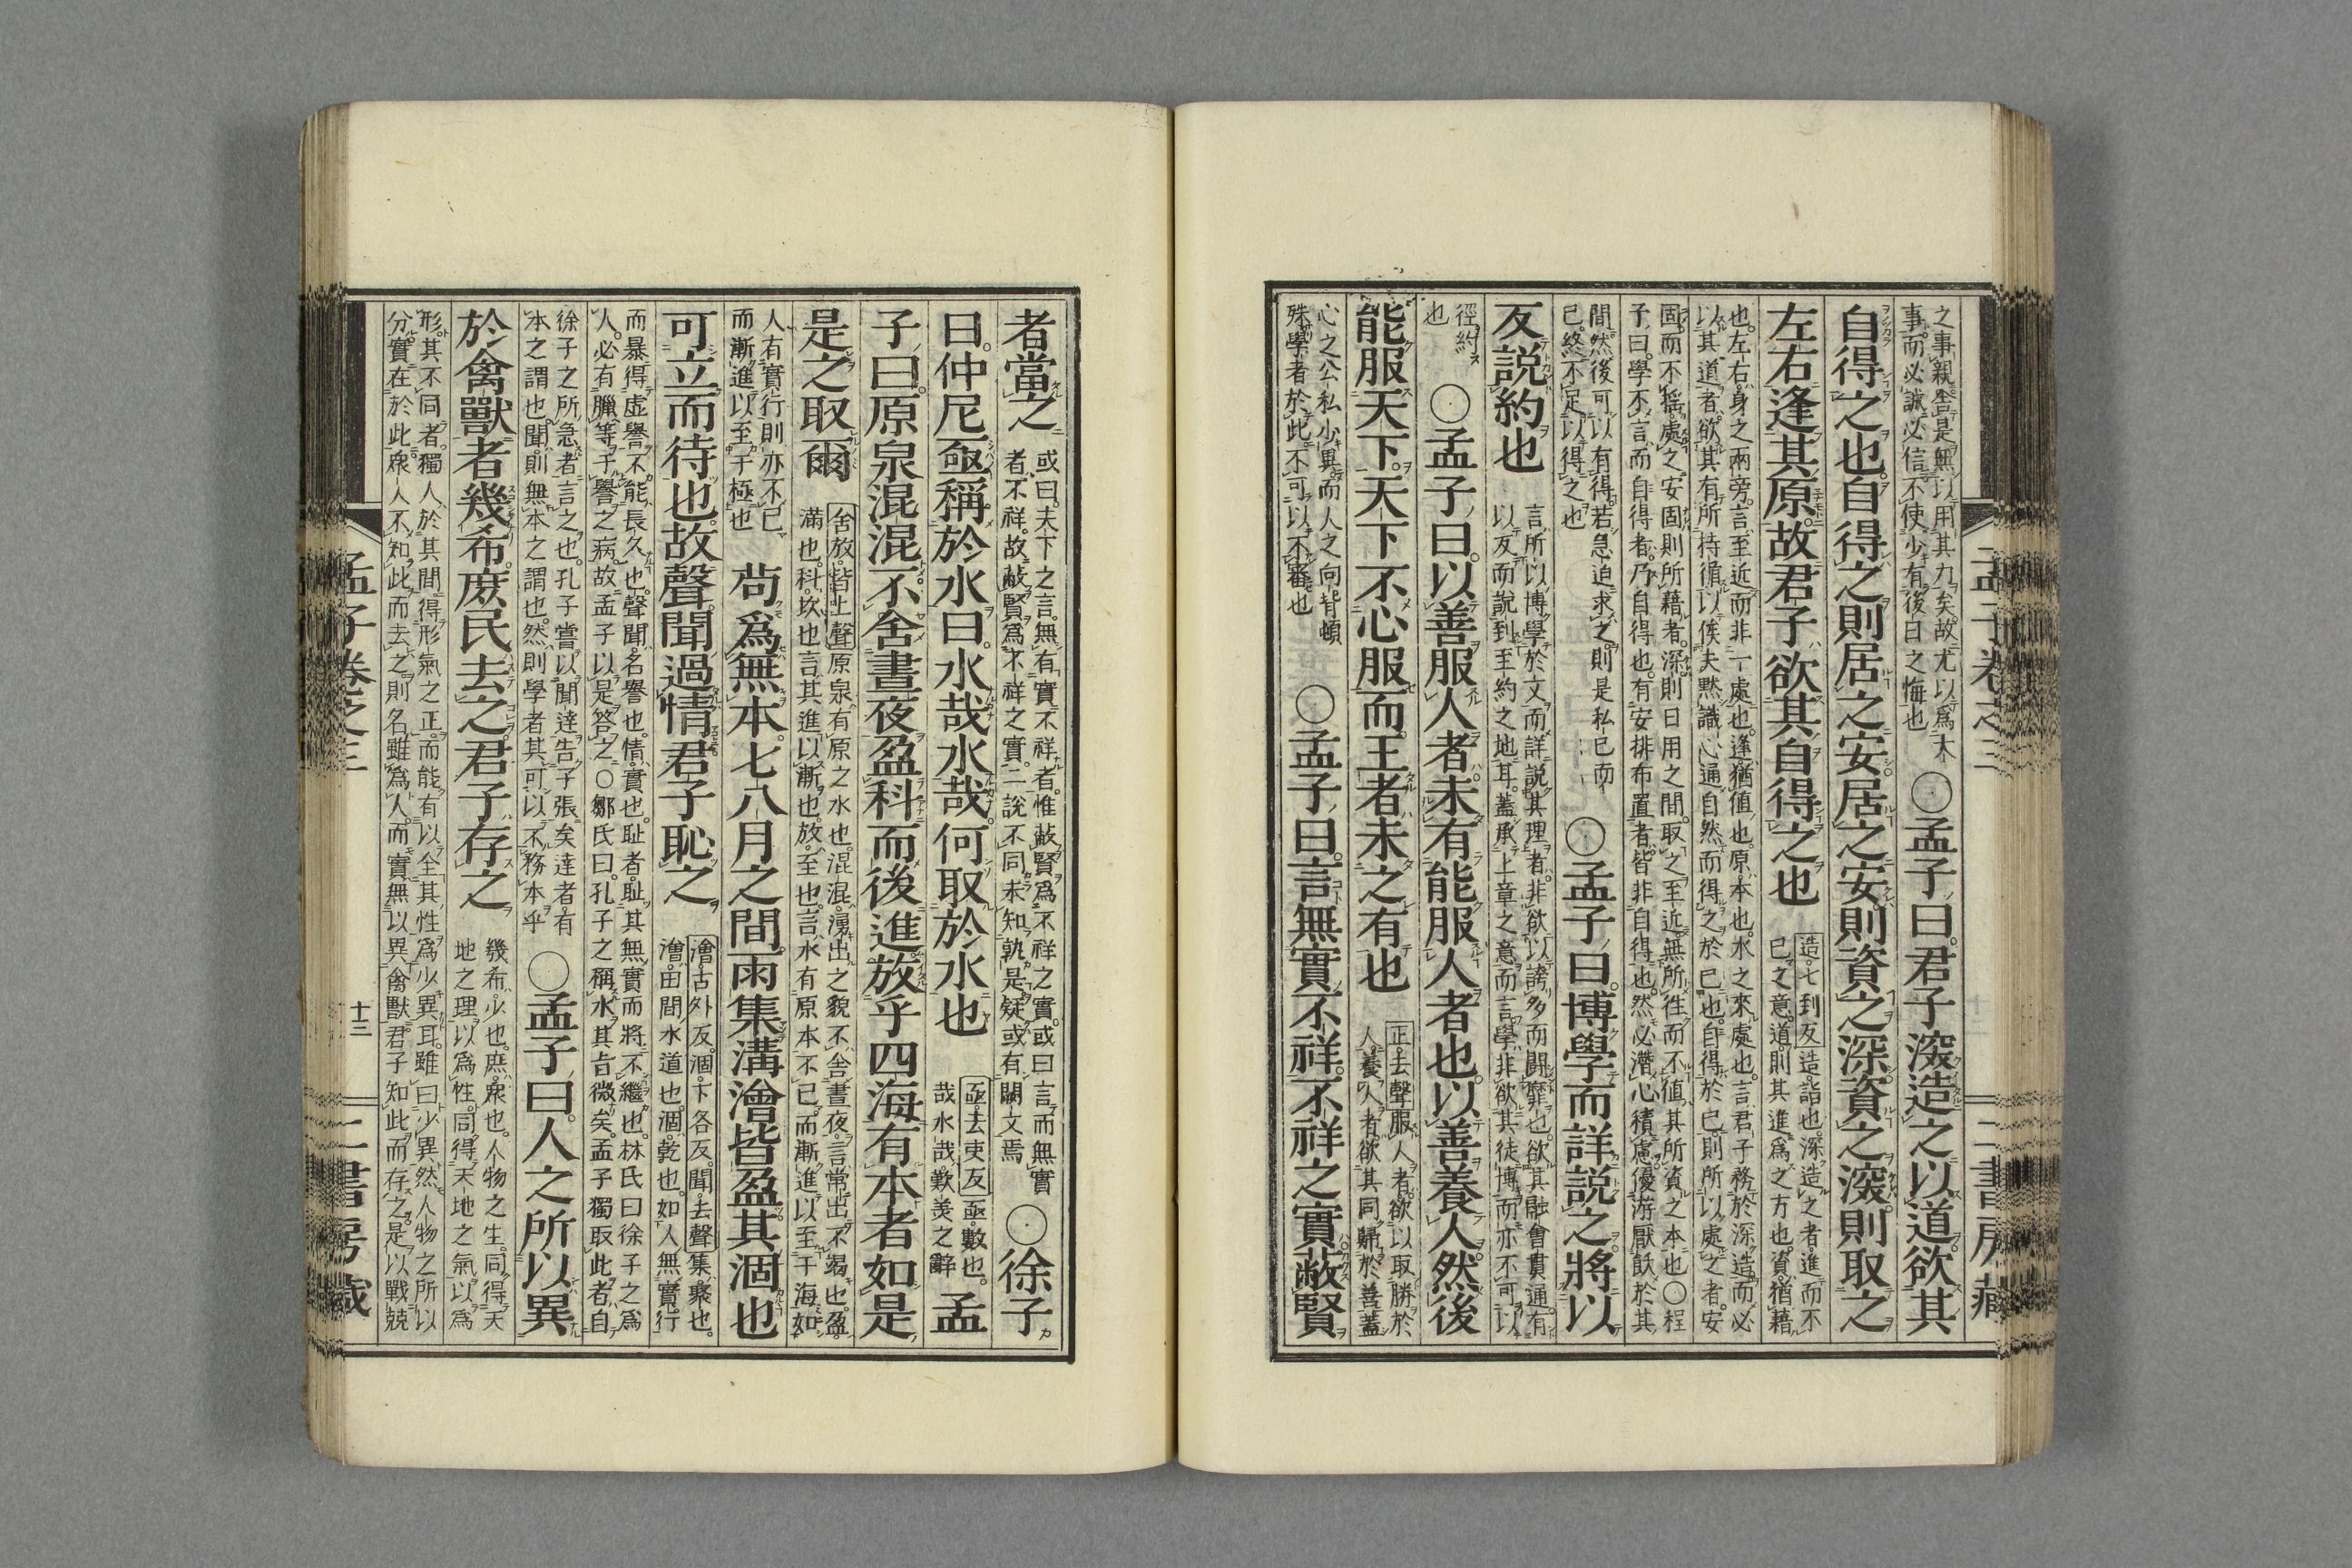 之事親舎是無以用其力矣故尤以爲大
事而必誠必信不使少有後日之悔也
○孟子曰君子深造之以道欲其
自得之也自得之則居之安居之安則資之深資之深則取之
左右逢其原故君子欲其自得之也
造七到反造詣也深造之者進而不
已之意道則其進爲之方也資猶藉
也左右身之兩旁言至近而非一處也逢猶値也原本也水之來處也言君子務於深造而必
以其道者欲其有所持循以俟夫黙識心通自然而得之於已也自得於已則所以處之者安
固而不揺處之安固則所藉者深則日用之間取之至近無所往而不値其所資之本也○程
子曰學不言而自得者乃自得也有安排布置者皆非自得也然必潛心積慮優游厭飫於其
間然後可以有得若急迫求之則是私已而
已終不足以得之也
○孟子曰博學而詳説之將以
反説約也
言所以博學於文而詳説其理者非欲以誇多而鬪靡也欲其融會貫通有
以反而説到至約之地耳蓋承上章之意而言學非欲其徒博而亦不可以
徑約
也
○孟子曰以善服人者未有能服人者也以善養人然後
能服天下天下不心服而王者未之有也
正去聲服人者欲以取勝於
人養人者欲其同歸於善蓋
心之公私少異而人之向背頓
殊學者於此不可以不審也
○孟子曰言無實不祥不祥之實蔽賢
孟子卷之三
二書房藏
者當之
或曰天下之言無有實不祥者惟蔽賢爲不祥之實或曰言而無實
者不祥故蔽賢爲不祥之實二説不同未知孰是疑或有闕文焉
○徐子
曰仲尼亟稱於水曰水哉水哉何取於水也
亟去吏反亟數也
哉水哉歎美之辭
孟
子曰原泉混混不舍晝夜盈科而後進放乎四海有本者如是
是之取爾
舍放皆上聲原泉有原之水也混混湧出之貌不舍晝夜言常出不竭也盈
滿也科坎也言其進以漸也放至也言水有原本不已而漸進以至于海如
人有實行則亦不已
而漸進以至于極也
苟爲無本七八月之間雨集溝澮皆盈其涸也
可立而待也故聲聞過情君子恥之
澮古外反涸下各反聞去聲集聚也
澮田間水道也涸乾也如人無實行
而暴得虛譽不能長久也聲聞名譽也情實也恥者恥其無實而將不繼也林氏曰徐子之爲
人必有臘等于譽之病故孟子以是答之○鄒氏曰孔子之稱水其旨微矣孟子獨取此者自
徐子之所急者言之也孔子嘗以聞達告子張矣達者有
本之謂也聞則無本之謂也然則學者其可以不務本乎
○孟子曰人之所以異
於禽獸者幾希庶民去之君子存之
幾希少也庶衆也人物之生同得天
地之理以爲性同得天地之氣以爲
形其不同者獨人於其間得形氣之正而能有以全其性爲少異耳雖曰少異然人物之所以
分實在於此衆人不知此而去之則名雖爲人而實無以異禽獸君子知此而存之是以戰兢
孟子卷之三
十三
二書房藏